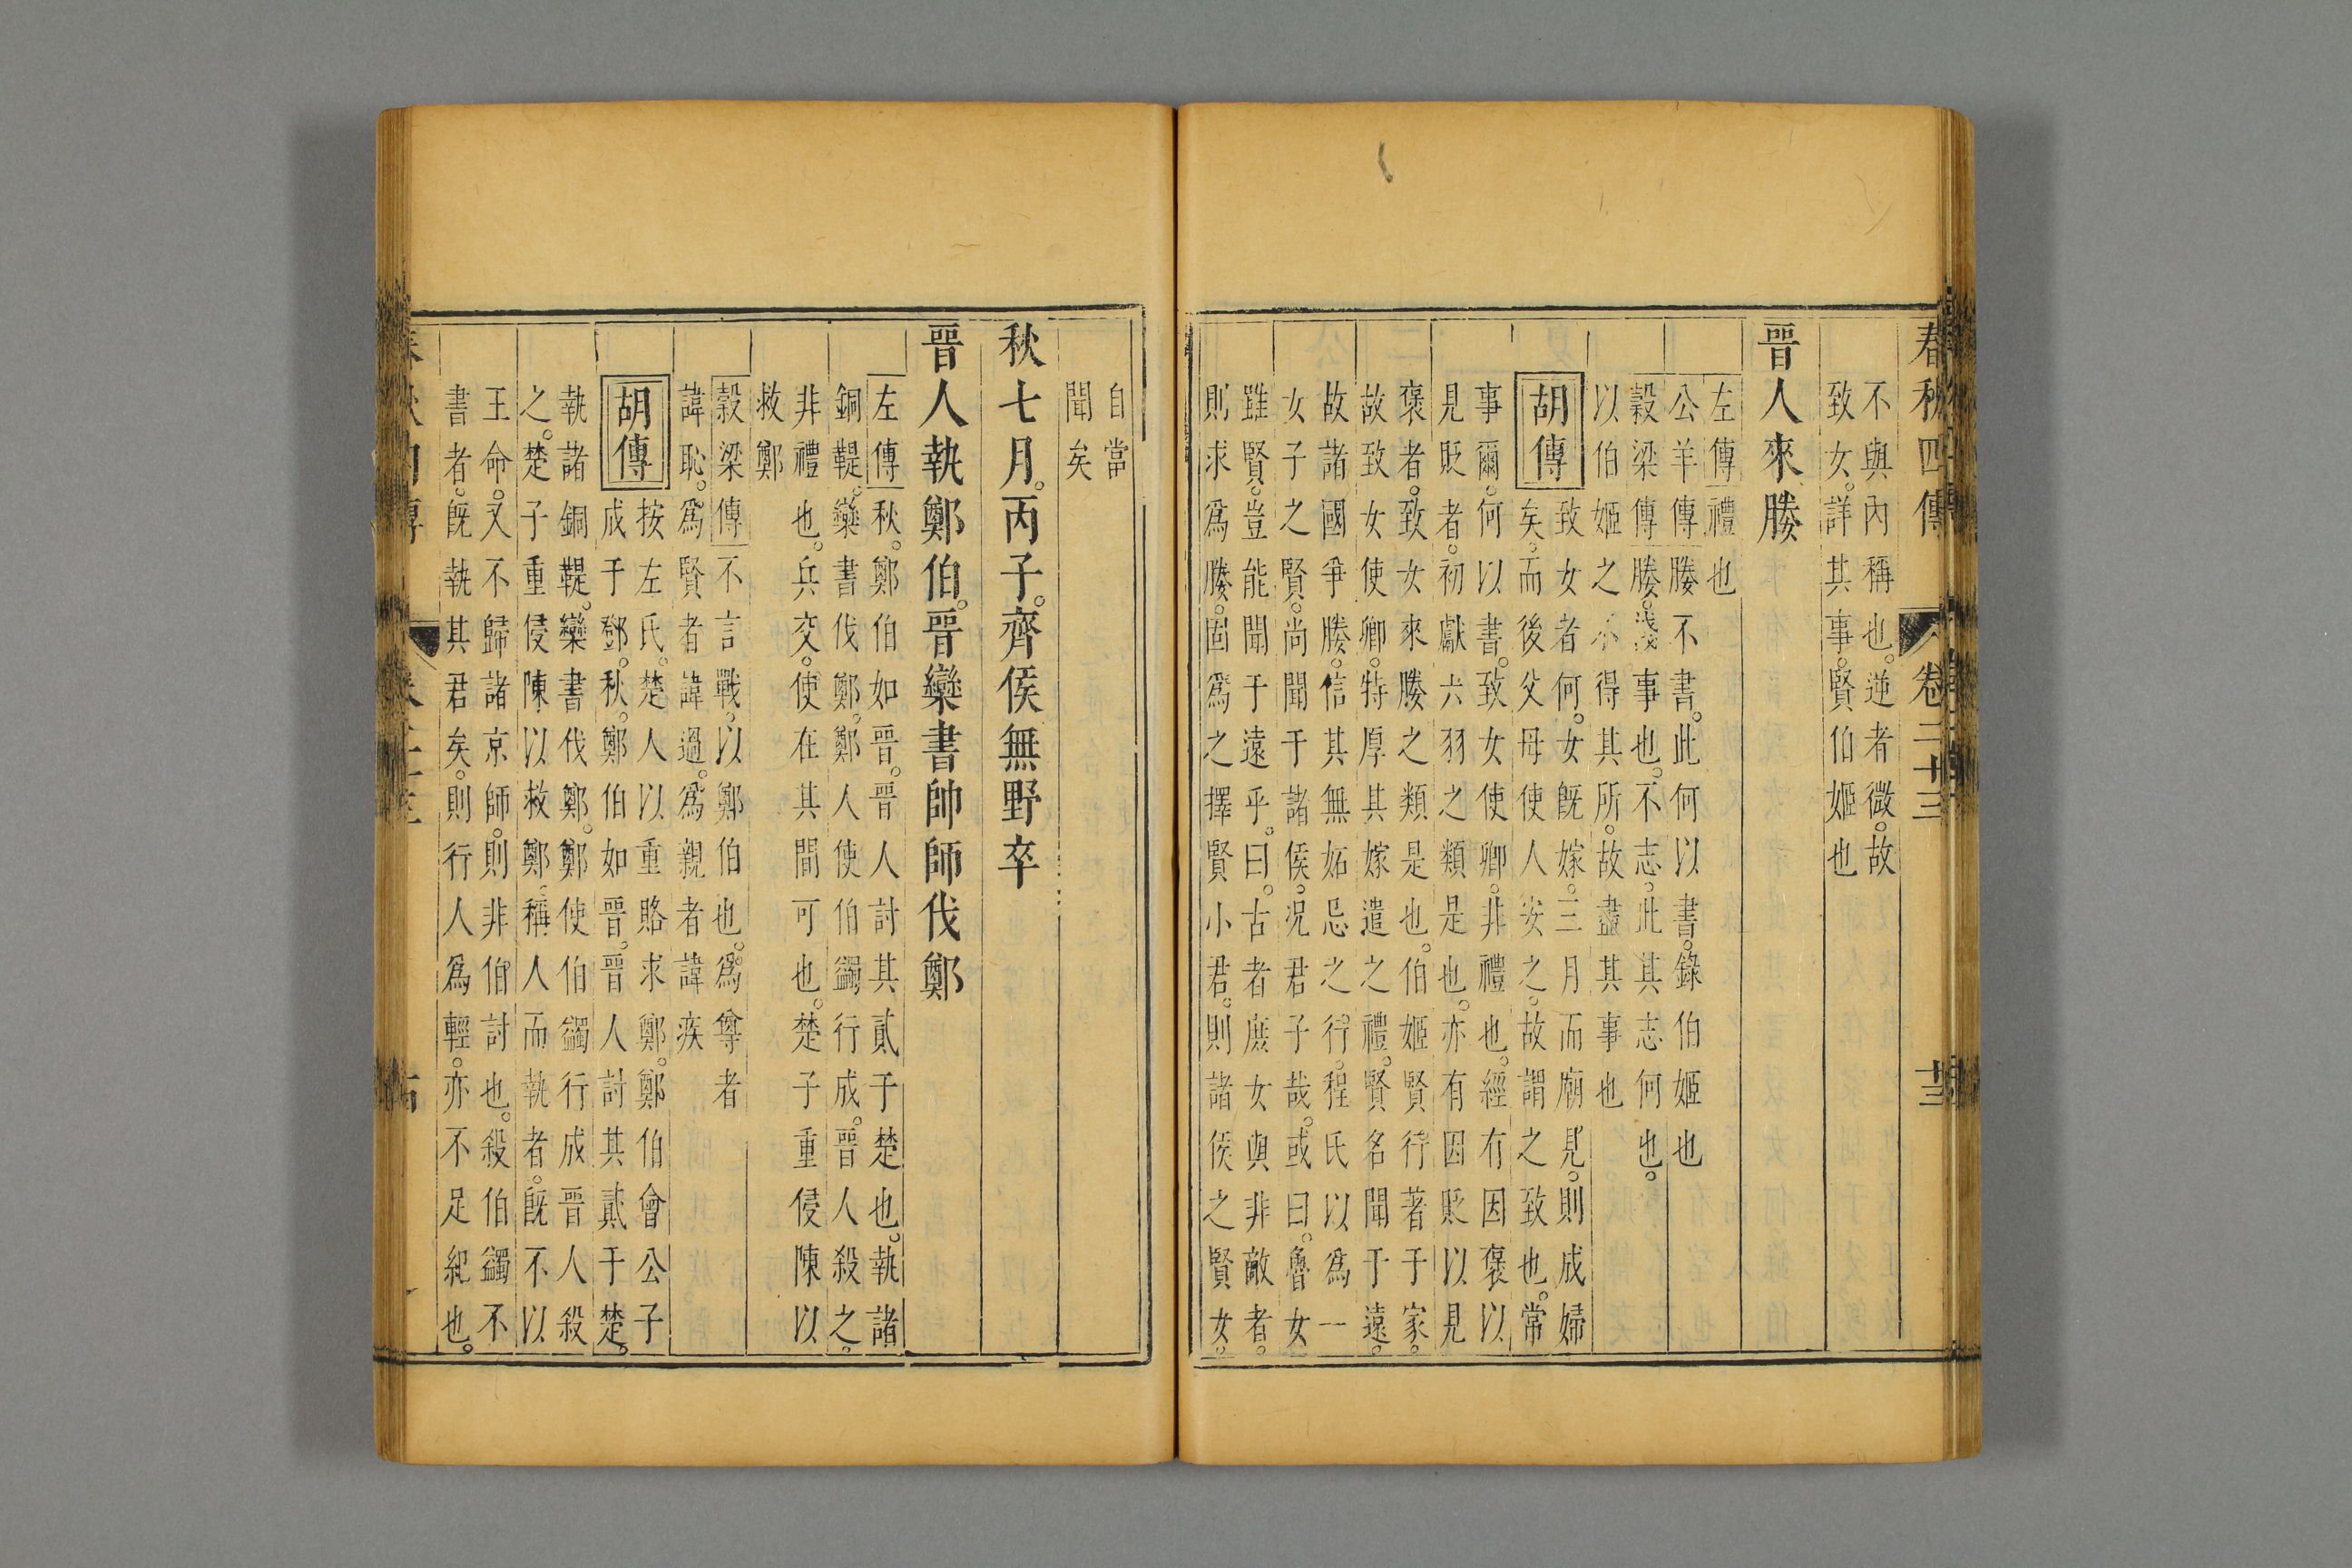 春秋四傳
卷二十三
十三
不與內稱也。逆者微。故
致女。詳其事。賢伯姬也
晉人來媵
左傳禮也
公羊傳媵不書。此何以書。錄伯姬也
穀梁傳媵。淺事也。不志。此其志何也。
以伯姬之不得其所。故盡其事也
胡傳
致女者何。女既嫁。三月而廟見。則成婦
矣。而後父母使人安之。故謂之致也。常
事爾。何以書。致女使卿。非禮也。經有因褒以
見貶者。初獻六羽之類是也。亦有因貶以見
褒者。致女來媵之類是也。伯姬賢行著于家。
故致女使卿。特厚其嫁遣之禮。賢名聞于遠。
故諸國爭媵。信其無妬忌之行。程氏以為一
女子之賢。尚聞于諸侯。况君子哉。或曰。魯女
雖賢。豈能聞于遠乎。曰。古者庶女與非敵者。
則求爲媵。固爲之擇賢小君。則諸侯之賢女。
自當
聞矣
秋七月。丙子。齊侯無野卒
晉人執鄭伯。晉欒書帥師伐鄭
左傳秋。鄭伯如晉。晉人討其貳于楚也。執諸
銅鞮。欒書伐鄭。鄭人使伯蠲行成。晉人殺之。
非禮也。兵交。使在其間可也。楚子重侵陳以
救鄭
穀梁傳不言戰。以鄭伯也。爲尊者
諱恥。爲賢者諱過。爲親者諱疾
胡傳
按左氏。楚人以重賂求鄭。鄭伯會公子
成于鄧。秋。鄭伯如晉。晉人討其貳于楚。
執諸銅鞮。欒書伐鄭。鄭使伯蠲行成晉人殺
之。楚子重侵陳以救鄭。稱人而執者。既不以
王命。又不歸諸京師。則非伯討也。殺伯蠲不
書者。既執其君矣。則行人爲輕。亦不足紀也。